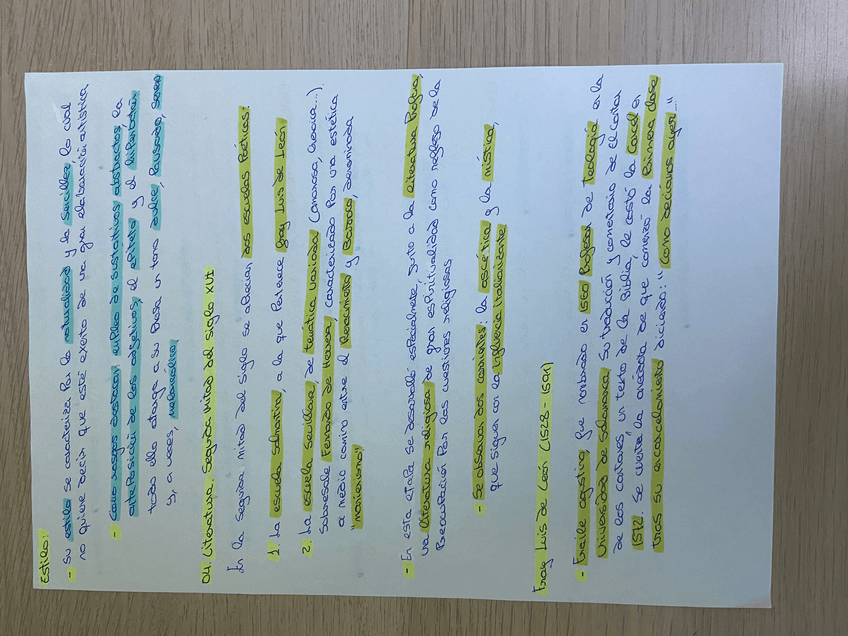 Estilo:
- Su estilo se caracteriza por la naturalidad y la sencillez, lo cual
no quiere decir que esté exento de una gran elaboración artística
- Como rasgos destacan: empleo de sustantivos abstractos, la
anteposición de los adjetivos, el epíteto y el hipérbaton
todo ello otorga a su poesía un tono dulce, pausado, suave
y, a veces, melancólico.
04. Literatura. Segunda mitad del siglo XVI
En la segunda mitad del siglo se aprecian dos escuelas poéticas:
1. La escuela salmantina, a la que pertenece fray Luis de León
2. La escuela sevillana, de temática variada (amorosa, heroica...).
Sobresale Fernando de Herrera, caracterizado por una estética
a medio camino entre el Renacimiento y Barroco, denominada
"manierismo"
- En esta etapa se desarrolló especialmente, junto a la literatura profana,
una literatura religiosa de gran espiritualidad como reflejo de la
preocupación por las cuestiones religiosas
- Se observan dos corrientes: la ascética y la mística,
que siguen con la influencia italianizante
Fray Luis de León (1528-1591)
- Fraile agustino fue nombrado en 1560 profesor de Teología en la
Universidad de Salamanca. Su traducción y comentario de El Cantar
de los Cantares, un texto de la Biblia, le costó la cárcel en
1572. Se cuenta la anécdota de que comenzó la primera clase
tras su encarcelamiento diciendo: "Como decíamos ayer..."